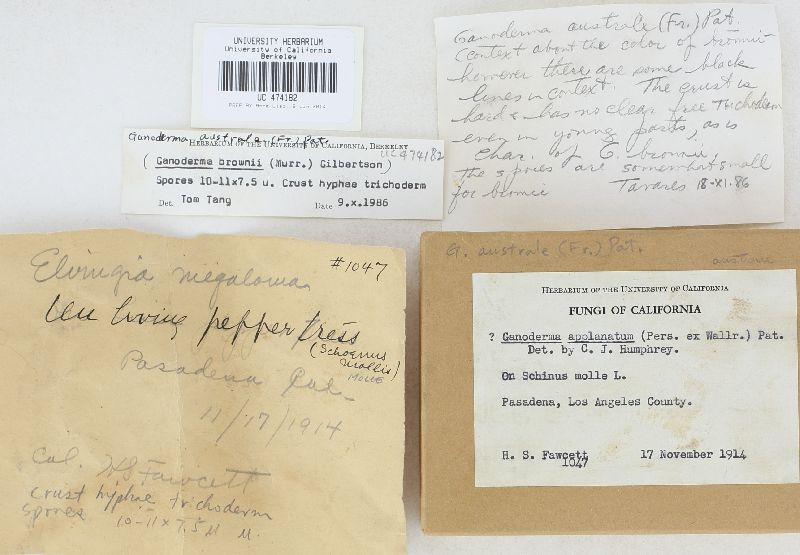 UNIVERSITY HERBARIUM
University of California
Berkeley
UC 474182
Ganoderma australe (Fr.) Pat.
HERBARIUM OF THE UNIVERSITY OF CALIFORNIA, BERKELEY
UC474182
( Ganoderma brownii (Murr.) Gilbertson)
Spores 10-11x7.5 u. Crust hyphae trichoderm
Det. Tom Tang Date 9.x.1986
Ganoderma australe (Fr.) Pat.
Context about the color of brownii
however there are some black
lines in context. The crust is
hard & has no clear free trichoderm
even in young parts, as is
char. of G. brownii
The spores are somewhat small
for brownii Tavares 18-XI.86
#1047
Elvingia megaloma
On living pepper tress
(Schoenus
mollis)
MOLLE
Pasadena Cal.
11/17/1914
Col. HS Fawcett
crust hyphae trichoderm
spores 10-11 x 7.5 µ µ.
G. australe (Fr.) Pat.
australe
HERBARIUM OF THE UNIVERSITY OF CALIFORNIA
FUNGI OF CALIFORNIA
? Ganoderma applanatum (Pers. ex Wallr.) Pat.
Det. by C. J. Humphrey.
On Schinus molle L.
Pasadena, Los Angeles County.
H. S. Fawcett 17 November 1914
1047